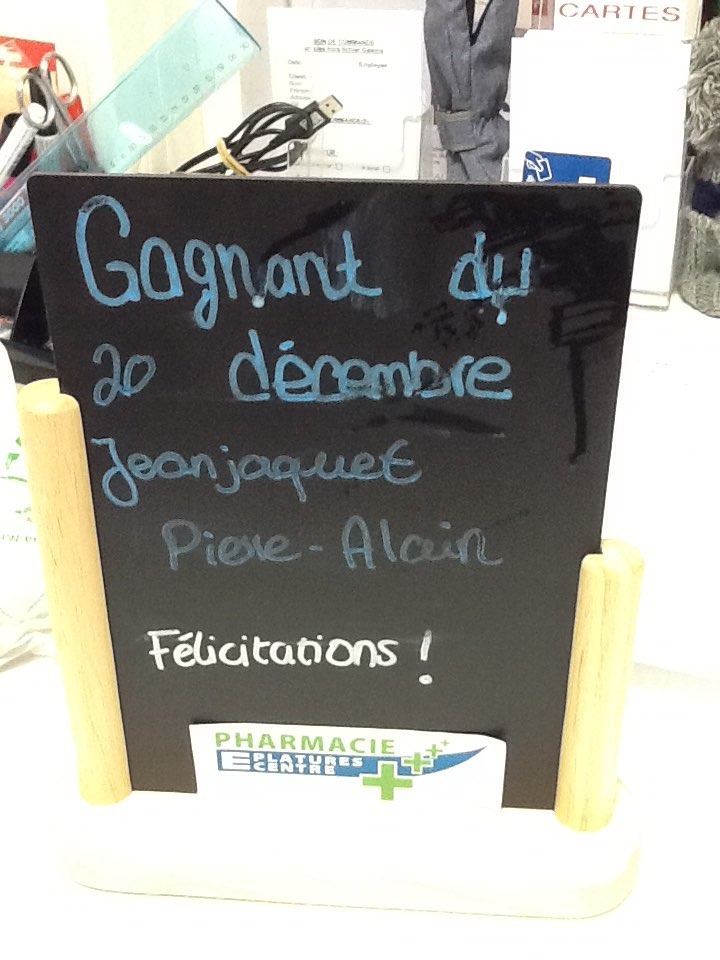 CARTES
BON DE COMMANDE
Gagnant du
20 décembre
Jeanjaquet
Pierre-Alain
Félicitations !
PHARMACIE
EPLATURES
CENTRE